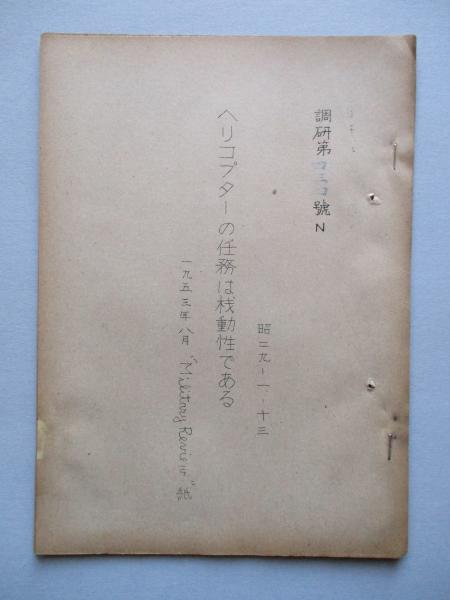 調研第 號 N
昭二九-一-十三
ヘリコプターの任務は栈動性である
一九五三年八月 "Military Review" 紙